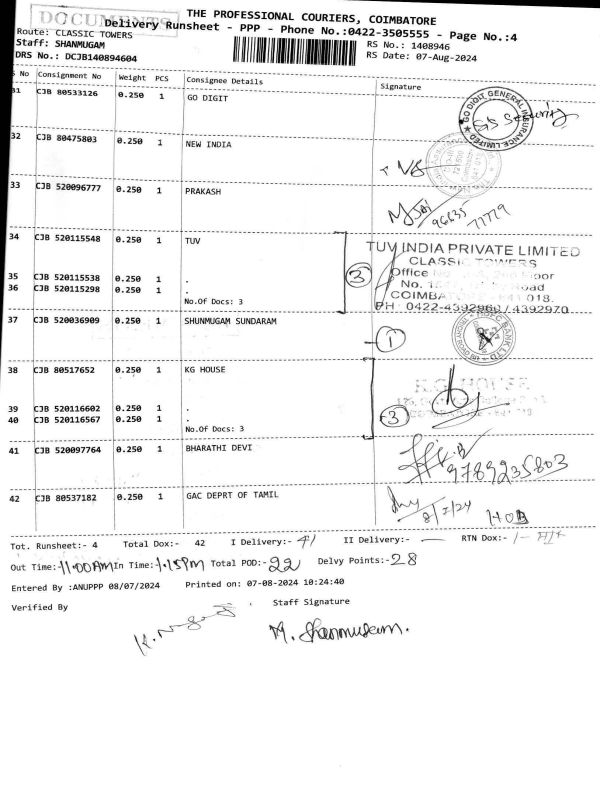 DOCUMENTS
THE PROFESSIONAL COURIERS, COIMBATORE
Delivery Runsheet - PPP - Phone No.:0422-3505555 - Page No.:4
Route: CLASSIC TOWERS
RS No.: 1408946
Staff: SHANMUGAM
RS Date: 07-Aug-2024
DRS No.: DCJB140894604
S No Consignment No Weight PCS Consignee Details Signature
31 CJB 80533126 0.250 1 GO DIGIT
GO DIGIT GENERAL INSURANCE LIMITED
32 CJB 80475803 0.250 1 NEW INDIA
33 CJB 520096777 0.250 1 PRAKASH
96635
77779
34 CJB 520115548 0.250 1 TUV
35 CJB 520115538 0.250 1 .
36 CJB 520115298 0.250 1 .
No.Of Docs: 3
3
TUV INDIA PRIVATE LIMITED
CLASSIC TOWERS
Office No. Floor
No. Road
COIMBATORE - 641 018.
PH : 0422-4392960 / 4392970
37 CJB 520036909 0.250 1 SHUNMUGAM SUNDARAM
1
HDFC BANK LTD
38 CJB 80517652 0.250 1 KG HOUSE
39 CJB 520116602 0.250 1 .
40 CJB 520116567 0.250 1 .
No.Of Docs: 3
3
K.G. HOUSE
41 CJB 520097764 0.250 1 BHARATHI DEVI
9789235803
42 CJB 80537182 0.250 1 GAC DEPRT OF TAMIL
Tot. Runsheet:- 4 Total Dox:- 42 I Delivery:- 41 II Delivery:- — RTN Dox:- 1-
Out Time:- 11.00 AM In Time:- 1.15 PM Total POD:- 22 Delvy Points:- 28
Entered By :ANUPPP 08/07/2024 Printed on: 07-08-2024 10:24:40
Verified By Staff Signature
M. Shanmugam.